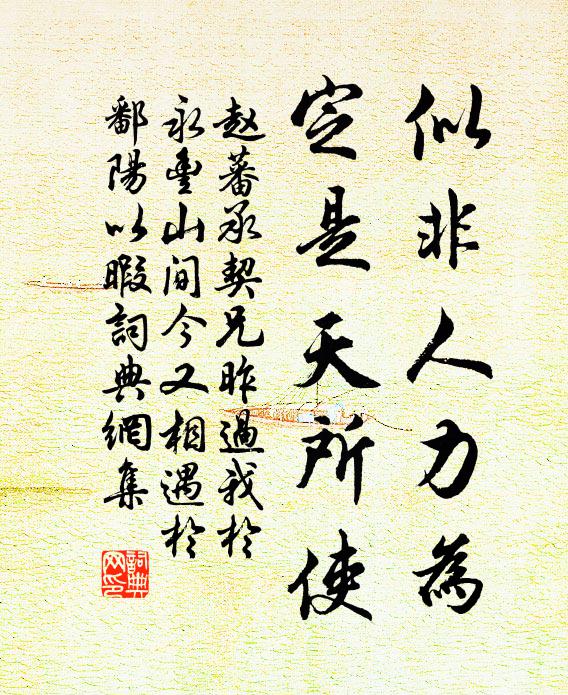 似非人力為
定是天所使
赵蕃承契兄昨過我於
永豐山间今又相遇於
鄱陽以暇詞典網集
詞典网印